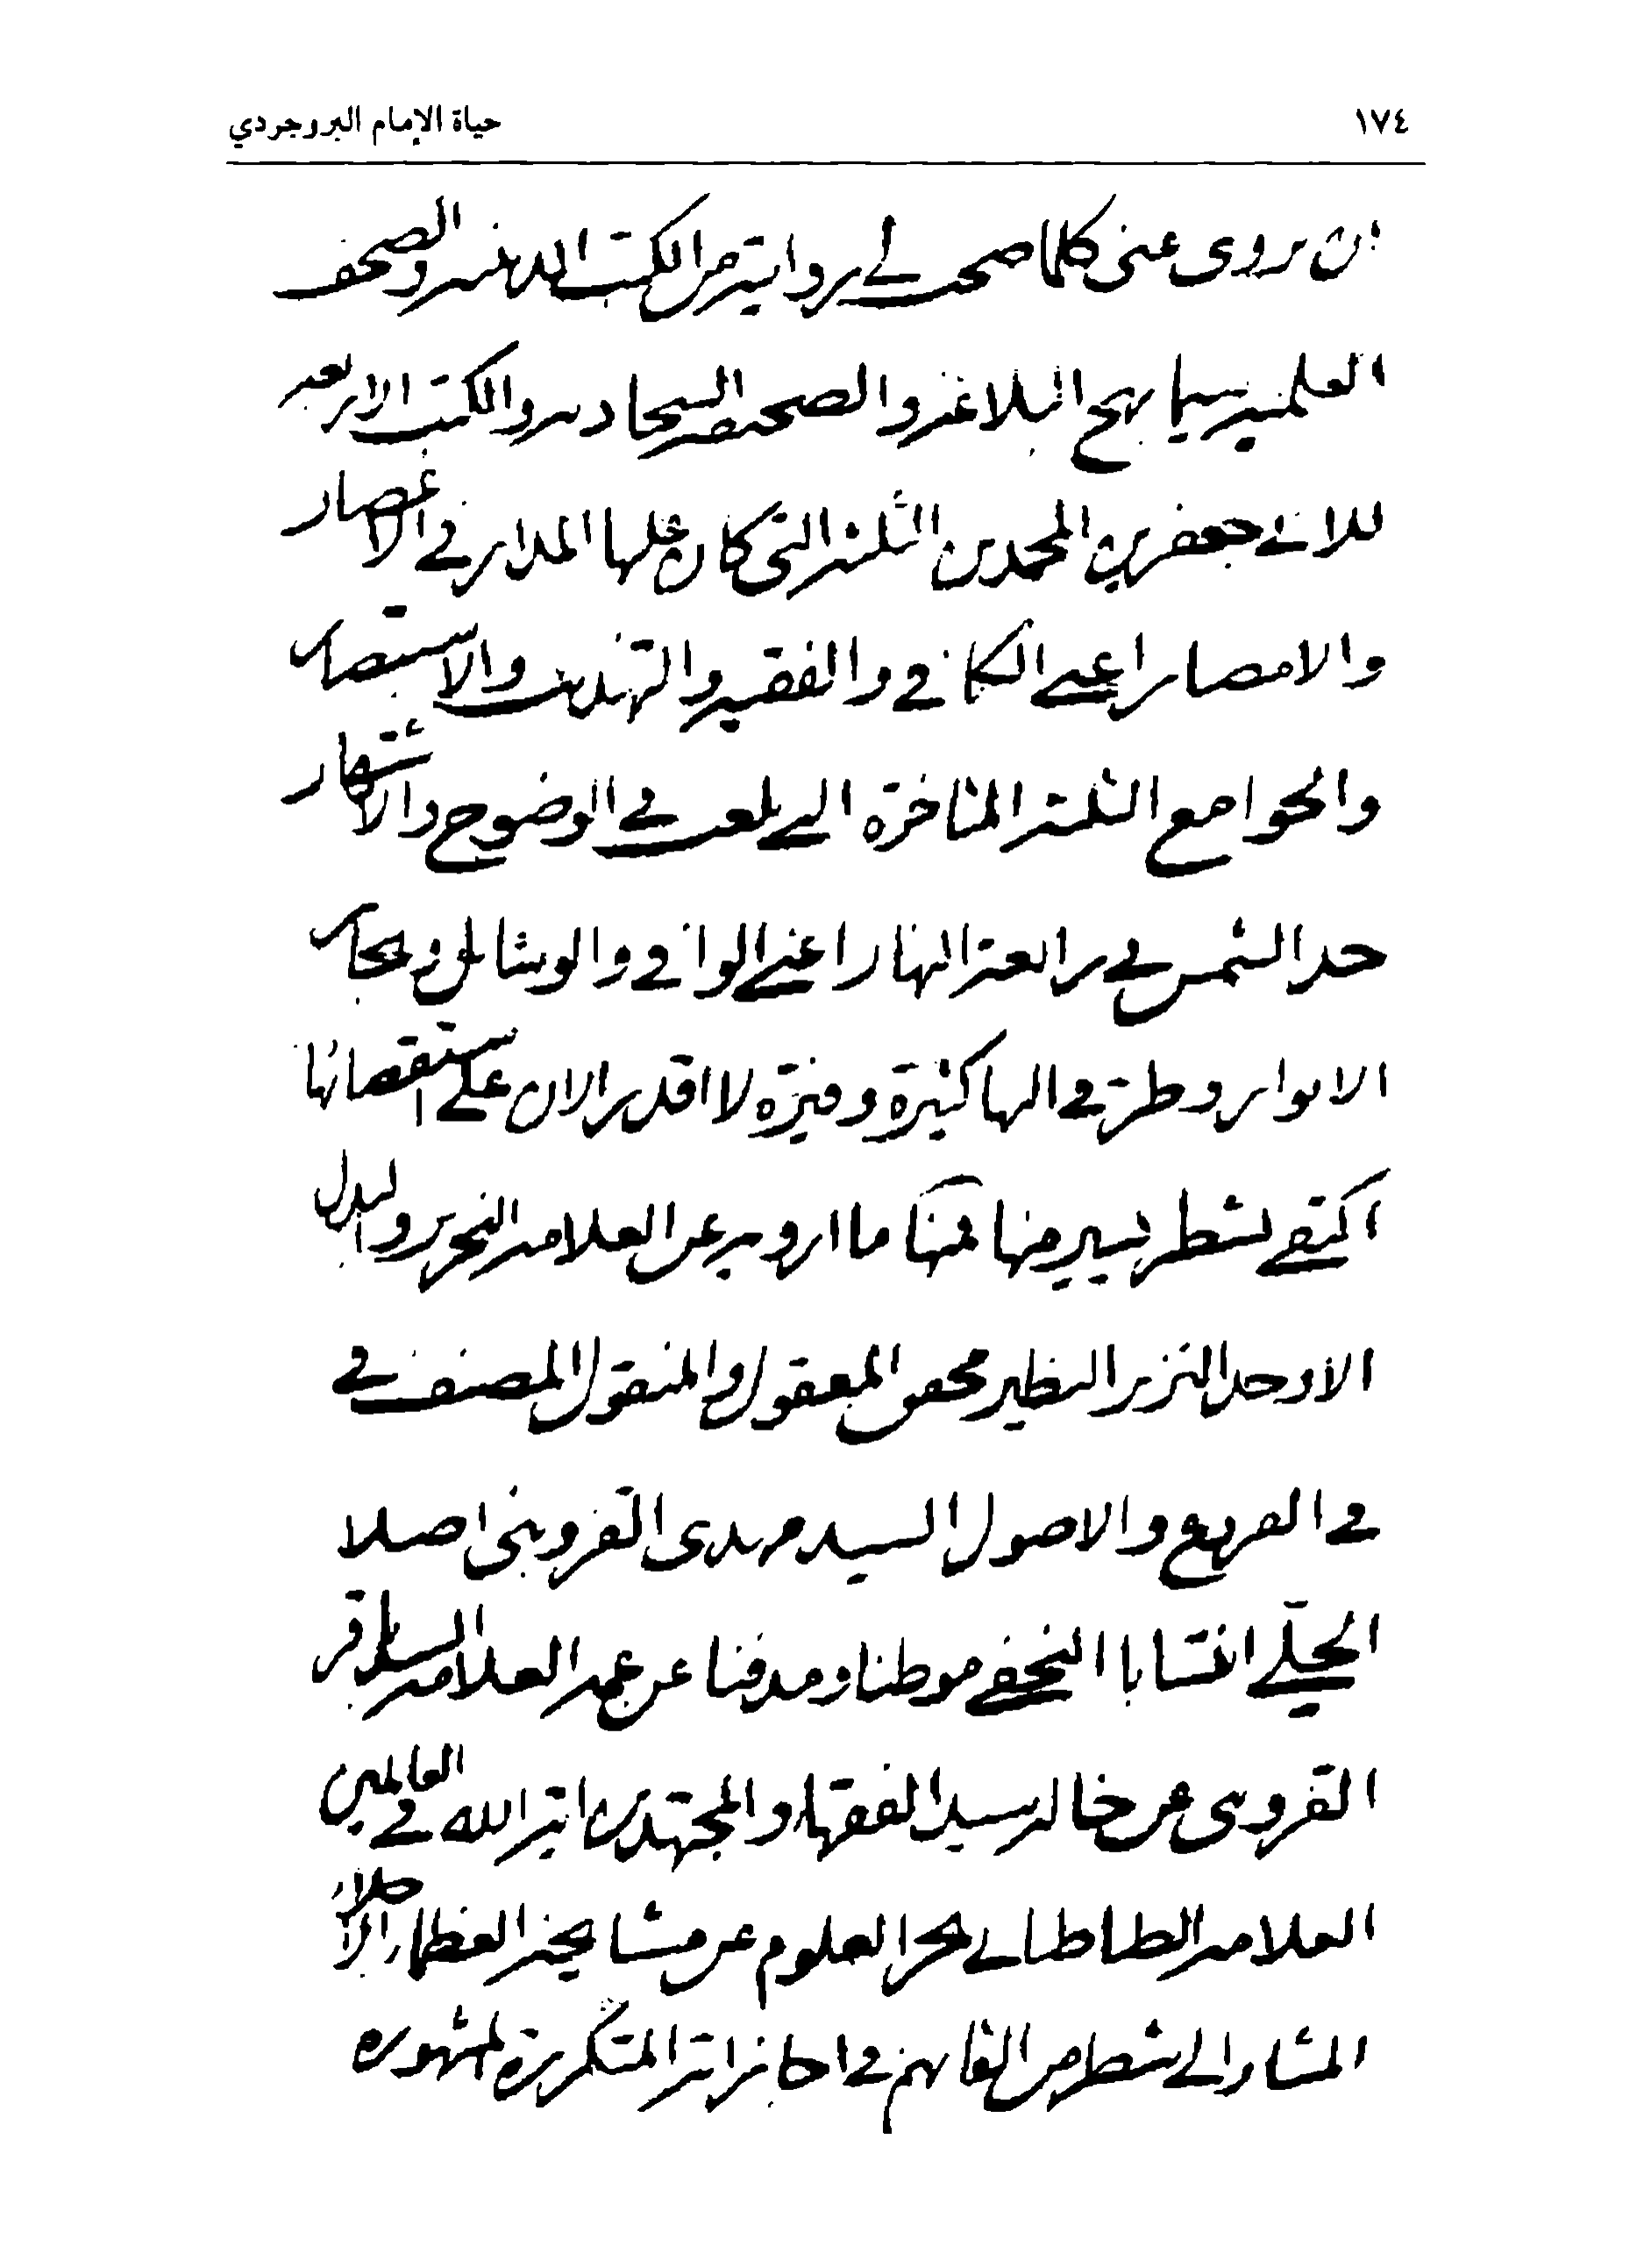 ١٧٤
حياة الإمام البروجردي
ان يروى عنى كلما صحت لي روايته من الكتب الدينيه والصحف
العلميه سيما نهج البلاغه والصحيفه السجاديه والكتب الاربعه
للاي جعفرين المحمدين الثلثه التى كان عليها المدار في الاعصار
والامصار اعني الكافي والفقيه والتهذيب والاستبصار
والجوامع الثلثه المتاخرة التي بلغت في الوضوح والاشتهار
حد الشمس في رابعة النهار اعني الوافي والوسائل وبحار
الانوار وطرقي اليها كثيرة وفيرة لا اقدر الان على استقصائها
اكتفي بشطر يسير منها فمنها ما ارويه عن العلامه النحرير والبدل
الاوحد النزر النظير محقق المعقول والمنقول المصنف في
في الفروع والاصول السيد مهدى القزوينى اصلا
الحلّي انتسابا النجفي موطنا ومدفنا عن عمه العلامه السيد باقر
القزوينى عن خاله سيد الفقهاء والمجتهدين اية الله في العالمين
العلامه الطباطبائي بحر العلوم عن مشايخه العظماء الاجلاء
المشار الى شطر من القابهم في اجازاته المتكررة المشهوره